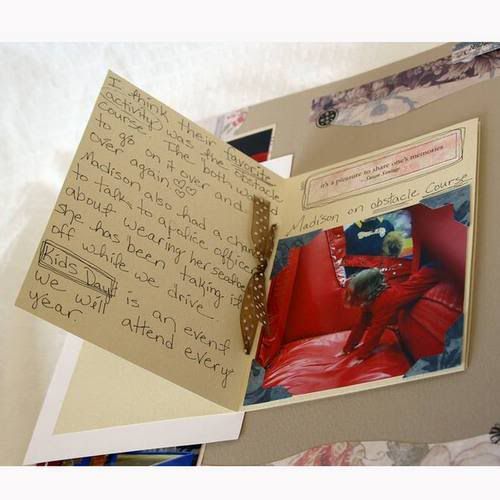 I think their favorite
activity was the obstacle
course. The both wanted
to go on it over and
over again ♡♡
Madison also had a chance
to talk to a police officer
about wearing her seatbelt
she has been taking it
off while we drive.
Kids Day is an event
we will attend every
year.
it's a pleasure to share one's memories.
Madison on obstacle Course